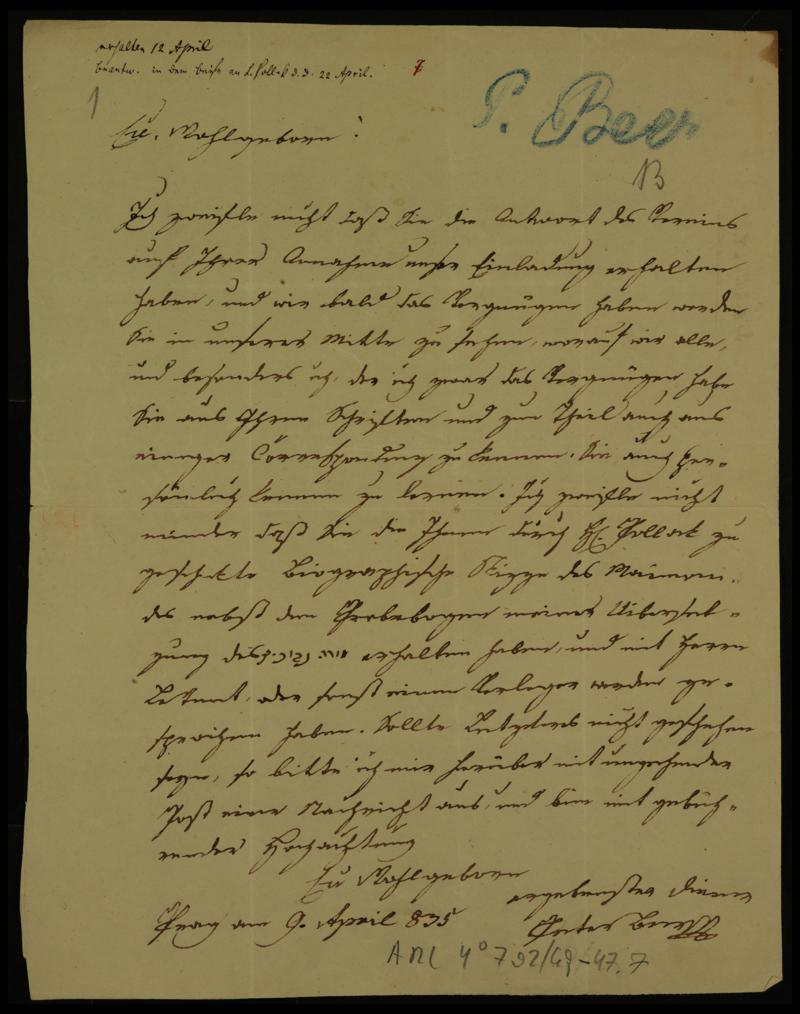 erhalten 12 April
beantw. in dem Briefe an L. Pollak d. d. 22 April.
7
1
P. Beer
B
Eu. Wohlgeborn!
Ich zweifle nicht daß Sie die Antwort des Vereins
auf Ihrer Annahme unser Einladung erhalten
haben, und wir bald das Vergnügen haben werden
Sie in unserer Mitte zu sehen, worauf wir alle,
und besonders ich, der ich zwar das Vergnügen habe
Sie aus Ihren Schriften und zum Theil auch aus
einiger Correspondenz zu kennen, Sie auch per-
sönlich kennen zu lernen. Ich zweifle nicht
minder daß Sie die Ihnen durch H. Pollack zu
geschickte Biographische Skizze des Maimoni-
des nebst dem Probebogen meiner Uibersetz-
zung des מורה נבוכים erhalten haben, und mit Herrn
oder sonst einem Verleger werden ge-
sprochen haben. Sollte Letzteres nicht geschehen
seyn, so bitte ich mir hierüber mit umgehender
Post eine Nachricht aus, und bin mit gebüh-
render Hochachtung
Eu Wohlgeborn
ergebenster Diener
Prag am 9. April 835
Peter Beer
ARC 4° 792/G9-47.7